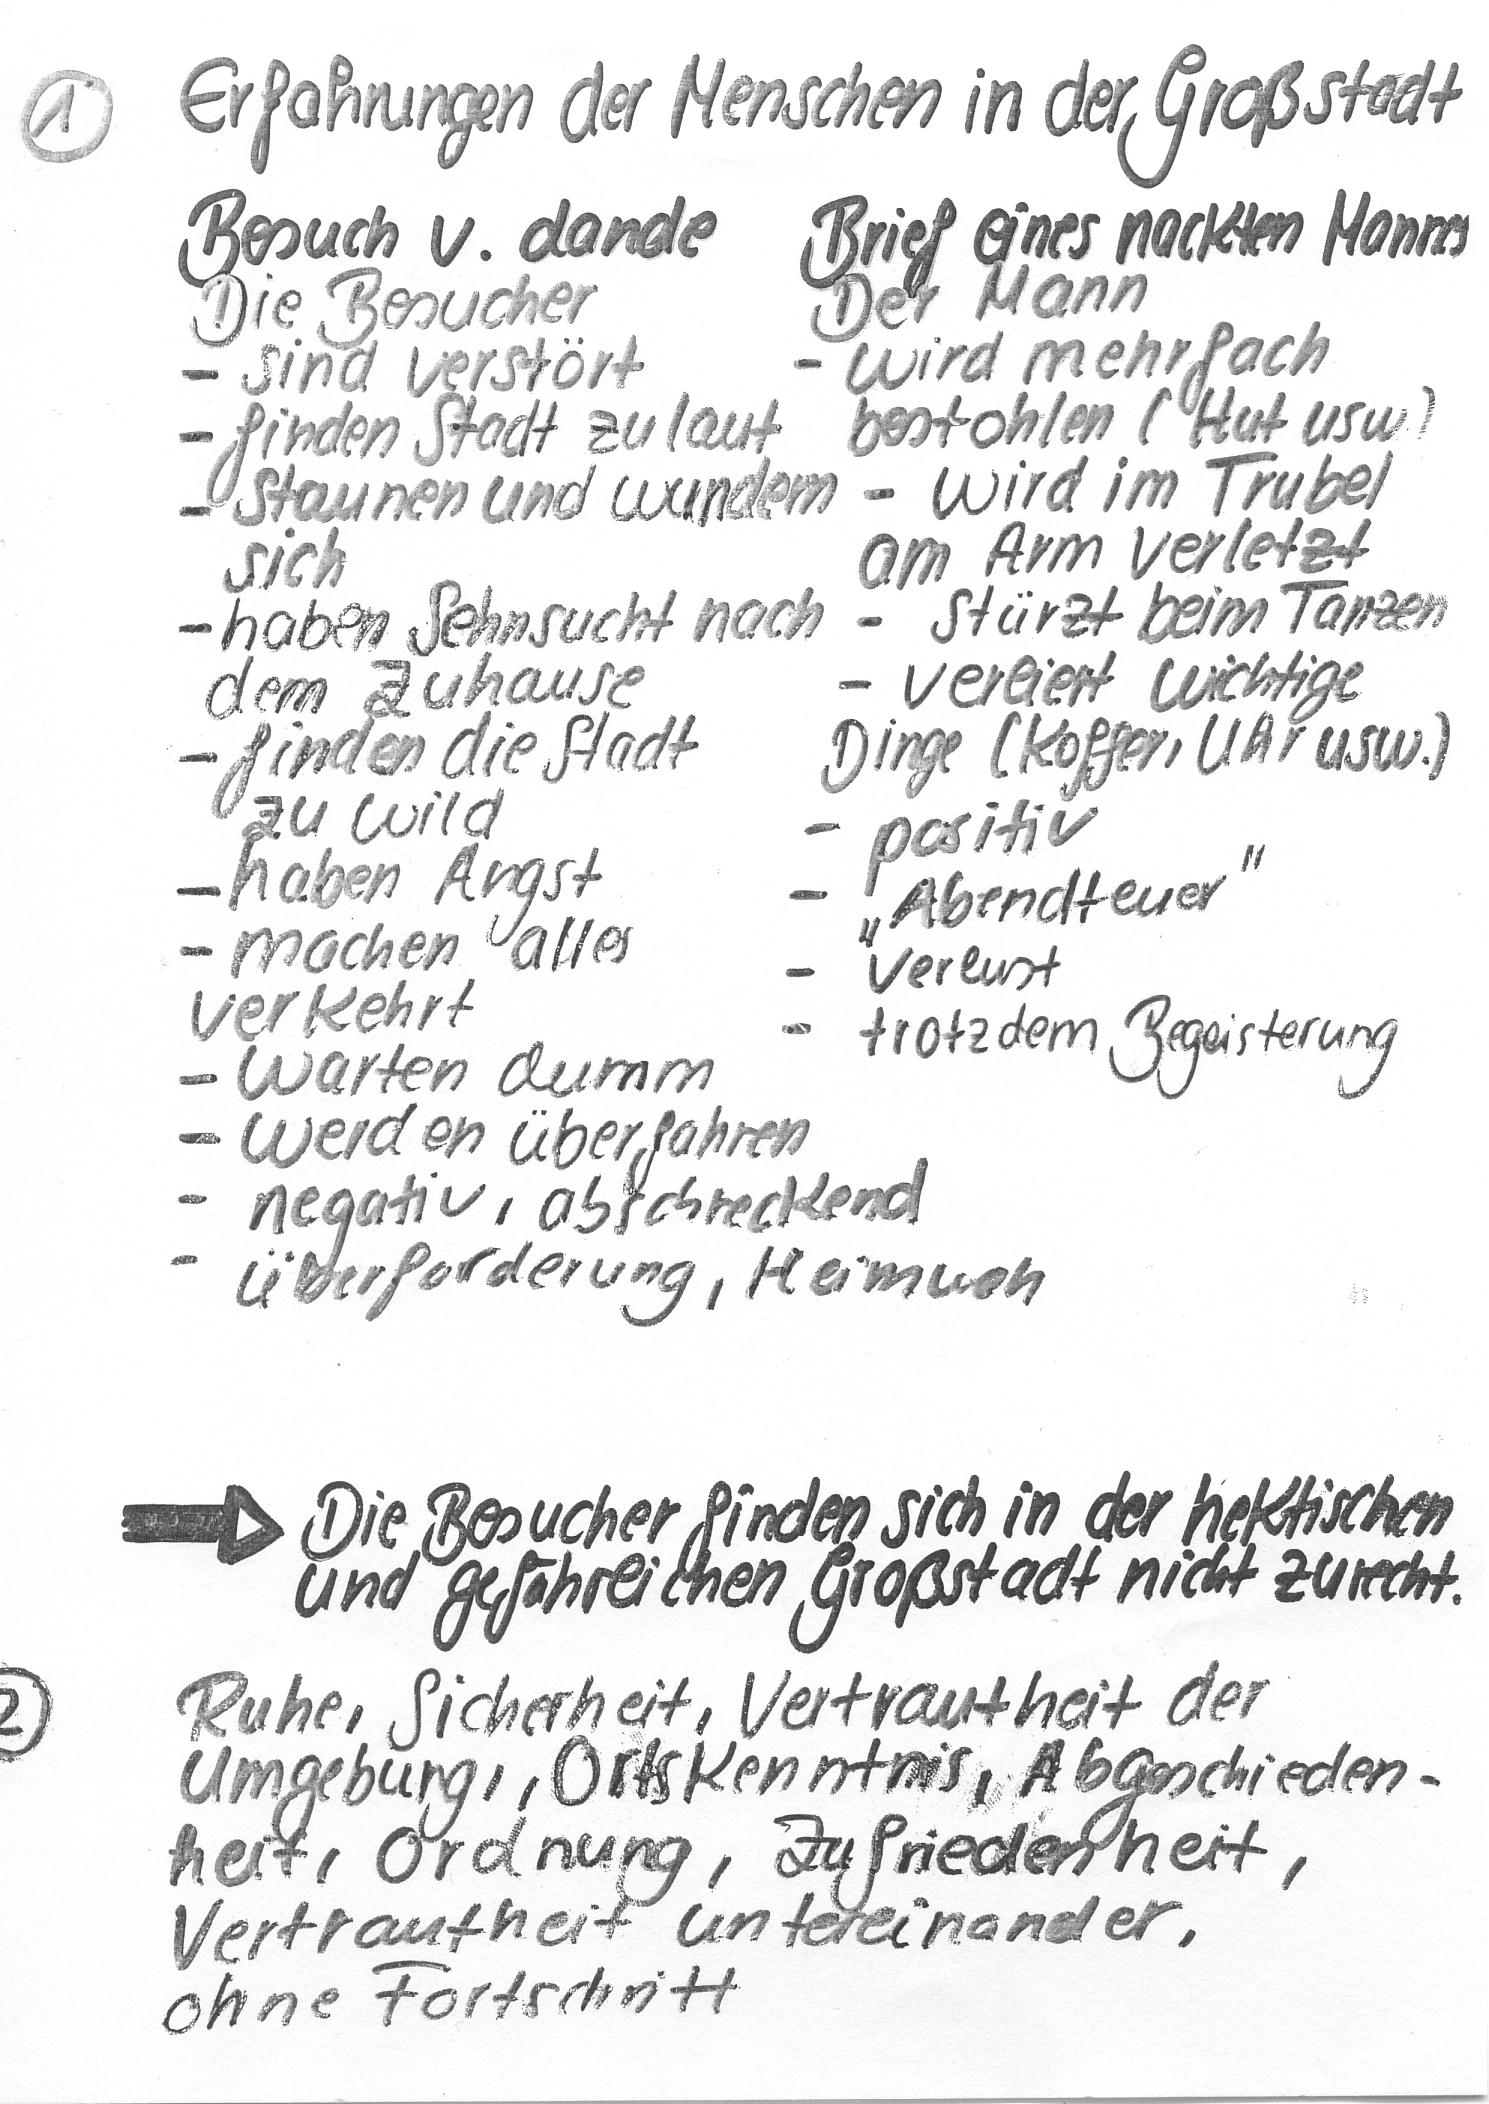 1
Erfahrungen der Menschen in der Großstadt
Besuch v. lande
Die Besucher
- sind verstört
- finden Stadt zu laut
- Staunen und wundern
sich
- haben Sehnsucht nach
dem Zuhause
- finden die Stadt
zu wild
- haben Angst
- machen alles
verkehrt
- warten dumm
- werden überfahren
- negativ, abschreckend
- überforderung, Heimweh
Brief eines nackten Mannes
Der Mann
- wird mehrfach
bestohlen (Hut usw.)
- wird im Trubel
am Arm verletzt
- stürzt beim Tanzen
- verliert wichtige
Dinge (Koffer, Uhr usw.)
- positiv
- „Abendteuer"
- Verlust
- trotzdem Begeisterung
Die Besucher finden sich in der hektischen
und gefährlichen Großstadt nicht zurecht.
2
Ruhe, Sicherheit, Vertrautheit der
Umgebung, , Ortskenntnis, Abgeschieden-
heit, Ordnung, Zufriedenheit,
Vertrautheit untereinander,
ohne Fortschritt